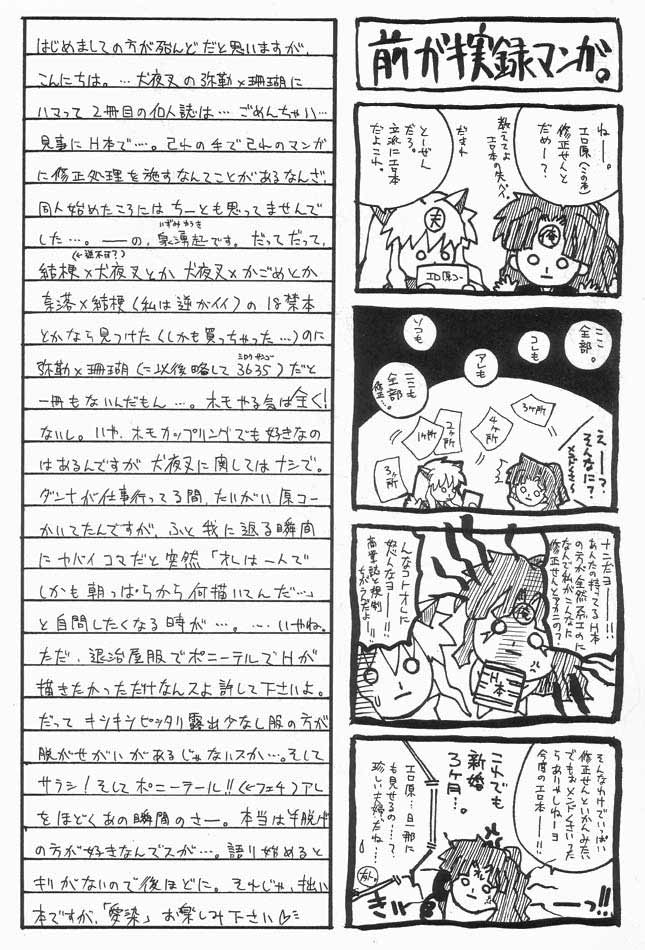 はじめましての方が殆んどだと思いますが、
こんにちは。… 犬夜叉の弥勒×珊瑚に
ハマって2冊目の同人誌は… ごめんちゃい…
見事にH本で…。己れの手で己れのマンガ
に修正処理を施すなんてことがあるなんざ、
同人始めたころにはちーとも思ってませんで
した…。ーーの、
です。だってだって、
(←逆不可?)
桔梗×犬夜叉とか 犬夜叉×かごめとか
奈落×桔梗(私は逆がイイ)の18禁本
とかなら見つけた(しかも買っちゃった…)のに
弥勒×珊瑚(に以後略して3635)だと
ミロクサンゴ
一冊もないんだもん…。ホモやる気は全く!
ないし。いや、ホモカップリングでも好きなの
はあるんですが 犬夜叉に関してはナシで。
ダンナが仕事行ってる間、だいがい原コー
かいてたんですが、ふと我に返る瞬間
にヤバイコマだと突然「オレは一人で
しかも朝っぱらから何描いてんだ…」
と自問したくなる時が…。…いやね。
ただ、退治屋服でポニーテルでHが
描きたかっただけなんスよ許して下さいよ。
だって キンキンピッタリ露出少なし服の方が
脱がせがいがあるじゃないスか…。そして
サラシ!そしてポニーテール!!(←フェチ)アレ
をほどくあの瞬間のさー。本当は半脱げ
の方が好きなんでスが…。語り始めると
キリがないので後ほどに。それじゃ、拙い
本ですが、「愛染」お楽しみ下さい
前が実録マンガ。
ねー。
エロ原(↑この本)
修正せんと
だめー?
教えてよ
エロ本の先パイ。
だまれ
とーぜん
だろ。
立派にエロ本
だよコレ。
俺
夫
エロ原コー
ここ
全部。
コレも
アレも
ソコも
ここも
全部…
修正…
3ヶ所
4ヶ所
2ヶ所
1ヶ所
3ヶ所
えーっ?
そんなに?
メンドくさー
ナニだョ
あんたの持ってるH本
の方が全然エロエロなのに
なんで私がこんなに
修正せんとアカンの?
んなコトオレに
怒んなョー!!
商業誌と規制
ちがうんだよー!!
俺
H本
そんなわけでいっぱい
修正せんといかんみたい
でもぉメンドくさいったら
ありゃしねーョ
今度のエロ本ー!!
これでも
新婚
3ヶ月…。
エロ原…旦那に
も見せるの…?
珍しい夫婦だね…
友人。
オレ
ーっ!!